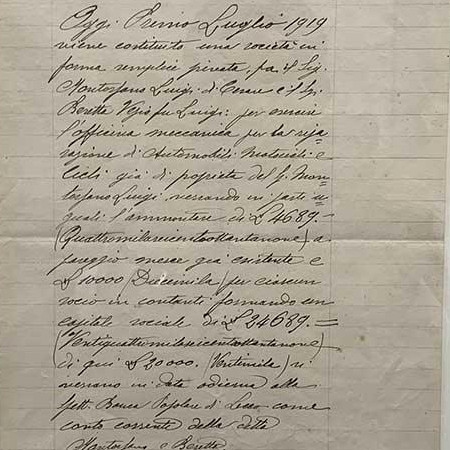 Oggi Primo Luglio 1919
viene costituito una società in
forma semplice privata, fra il Sig.
Montorfano Luigi di Cesare e il Sig.
Beretta Vigio fu Luigi: per esercire
l'officina meccanica per la ripa-
razione di Automobili Motocicli e
Cicli già di proprietà del S. Mon-
torfano Luigi, versando in parti u-
guali l'ammontare di £ 4689.-
(Quattromilaseicentoottantanove) a
pareggio merce già esistente e
£ 10000 (Diecimila) per ciascun
socio in contanti formando un
capitale sociale di £ 24689.=
(Ventiquattromilaseicentoottantanove)
di qui £ 20000. (Ventimila) si
versano in data odierna alla
Spett. Banca Popolare di Lecco come
conto corrente della detta
Montorfano e Beretta.